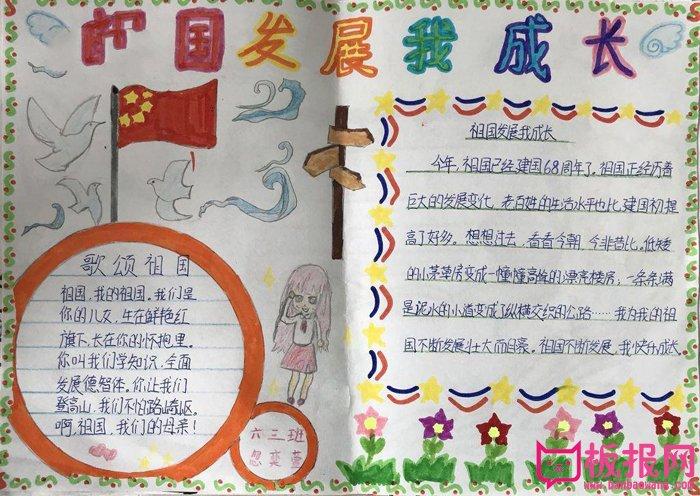 祖国发展我成长
祖国发展我成长
今年，祖国已经建国68周年了。祖国正经历着
巨大的发展变化，老百姓的生活水平也比建国初提
高了好多。想想过去，看看今朝，今非昔比。低矮
的小茅草房变成一幢幢高傢的小漂亮楼房；一条条满
是泥水的小道变成了纵横交织的公路……我为我的祖
国不断发展壮大而自豪。祖国不断发展，我快乐成长
歌颂祖国
祖国，我的祖国。我们是
你的儿女，生在鲜艳红
旗下，长在你的怀抱里。
你叫我们学知识，全面
发展德智体。你让我们
登高山，我们不怕路崎岖。
啊，祖国，我们的母亲！
六三班
忽奕萱
板报网
www.banbaowang.com